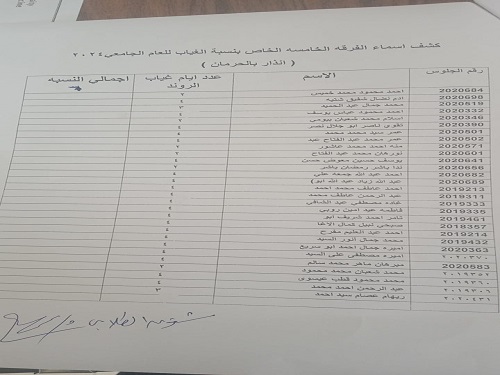 كشف اسماء الفرقه الخامسه الخاص بنسبة الغياب للعام الجامعى ٢٠٢٤
( انذار بالحرمان )
رقم الجلوس الاسم عدد ايام غياب الروند اجمالى النسبه
2020684 احمد محمود محمد خميس ٢
2020698 ادم نضال شفيق ٤
2020519 محمد جمال عبد الحميد ٣
2020332 احمد محمود عباس يوسف ٤
2020346 اسلام محمد شعبان بيومى ٢
2020390 تقوى ناصر ابو جلال نصر ٤
2020501 عمر سيد محمد محمد ٤
2020502 عمر محمد عبد الفتاح عبد ٤
2020571 منه احمد محمد عاشور ٢
2020601 نورهان محمد عبد الفتاح ٢
2020641 يوسف حسين معوض حسن ٤
2020656 ندا ياسر رمضان ياسر ٢
2020682 احمد عبد الله جمعه على ٤
2020689 عبد الله زياد عبد الله ابو ٤
2019213 احمد عاطف محمد احمد ٤
2019311 عبد الرحمن عاطف محمد ٤
2019333 عبده مصطفى عبد الشافى ٤
2019335 فاطمه عيد امين روبى ٤
2019461 تامر احمد شريف ابو ٤
2018357 صبحى نبيل كمال الاغا ٤
2019214 احمد عبد العليم مفرح ٤
2019432 محمد جمال انور السيد ٤
2020363 اميره جمال احمد ابو سريع ٤
٢٠٢٠٣٧٠ اميره مصطفى على السيد ٤
2020583 ميرهان ماهر محمد سالم ٢
٢٠١٩٣٥٢ محمد شعبان محمد محمود ٤
٢٠١٩٣٦٠ محمد محمود قطب عيسوى ٤
٢٠١٩٣٠٦ عبد الرحمن احمد محمد ٣
٢٠٢٠٤٣١ ريهام عصام سيد احمد
شئون الطلاب